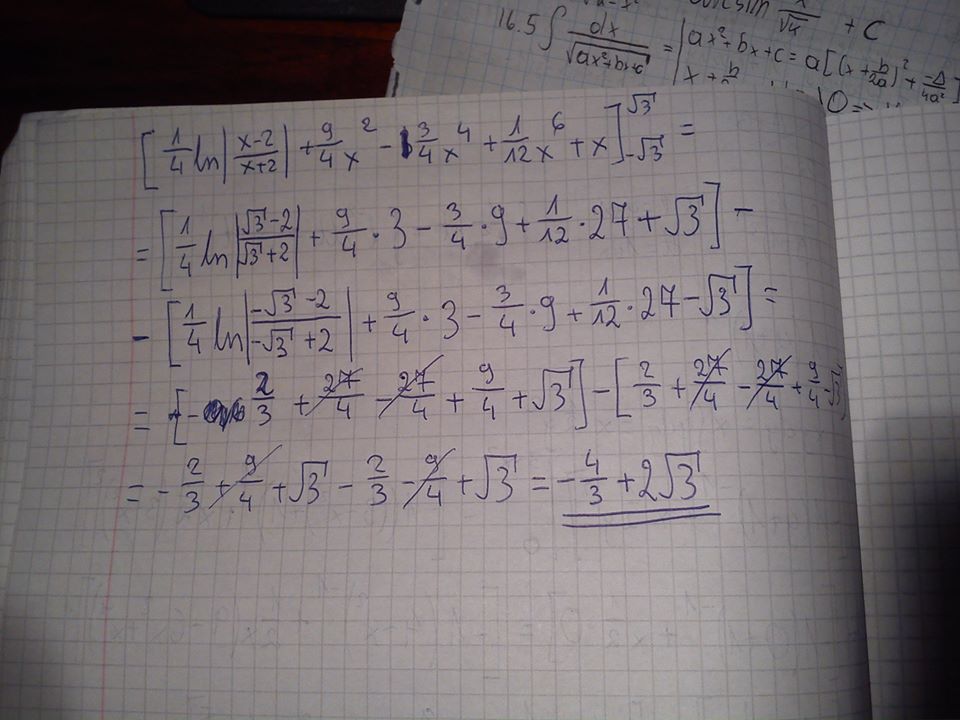 16.5 ∫ dx/√(ax²+bx+c) = | ax²+bx+c = a[(x+b/2a)²+ -Δ/4a²]
x/√4 + C
[1/4 ln|x-2/x+2| + 9/4 x² - 3/4 x⁴ + 1/12 x⁶ + x]_{-√3}^{√3} =
= [1/4 ln|√3-2/√3+2| + 9/4 · 3 - 3/4 · 9 + 1/12 · 27 + √3] -
- [1/4 ln|-√3-2/-√3+2| + 9/4 · 3 - 3/4 · 9 + 1/12 · 27 - √3] =
= [- 2/3 + 27/4 - 27/4 + 9/4 + √3] - [2/3 + 27/4 - 27/4 + 9/4 - √3]
= - 2/3 + 9/4 + √3 - 2/3 - 9/4 + √3 = - 4/3 + 2√3